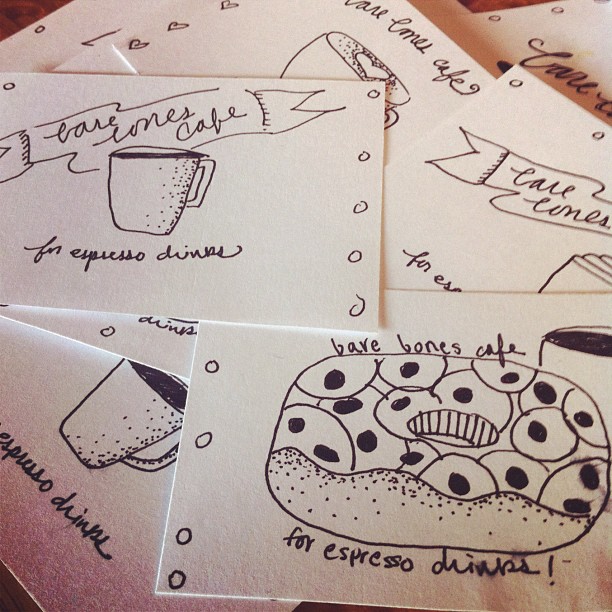 bare bones cafe
bare
bare bones cafe
for espresso drinks
bare
bones
for es
drinks
espresso drinks
bare bones cafe
for espresso drinks!